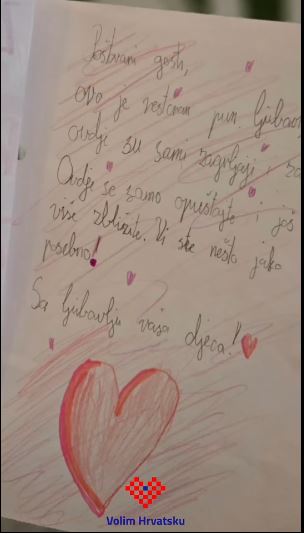 Poštovani gosti,
ovo je restoran pun ljubavi
ovdje su sami zagrljaji, za
Ovdje se samo opuštajte i još
više zbližite. Vi ste nešto jako
posebno!
Sa ljubavlju vaša djeca!
Volim Hrvatsku